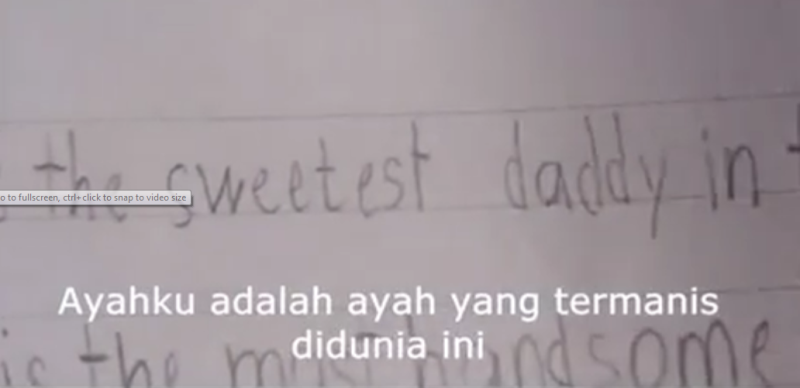 the sweetest daddy in
o to fullscreen, ctrl+click to snap to video size
Ayahku adalah ayah yang termanis
didunia ini
is the most handsome